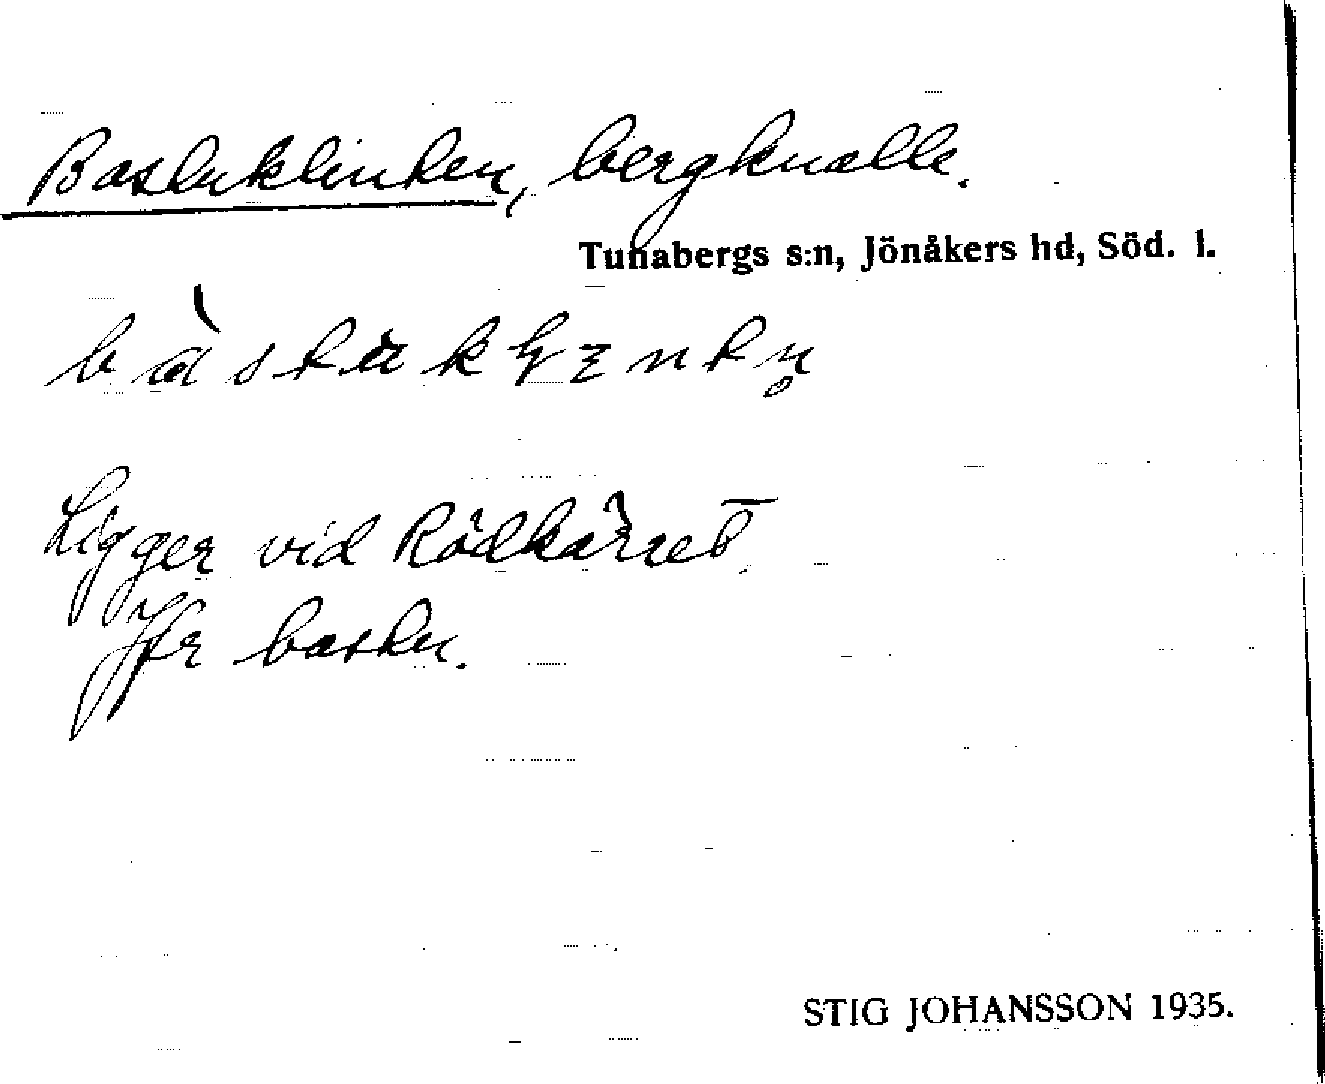 Bastuklinten, bergknalle.
Tunabergs s:n, Jönåkers hd, Söd. l.
Ligger vid Rödkärret.
Jfr bastu.
STIG JOHANSSON 1935.